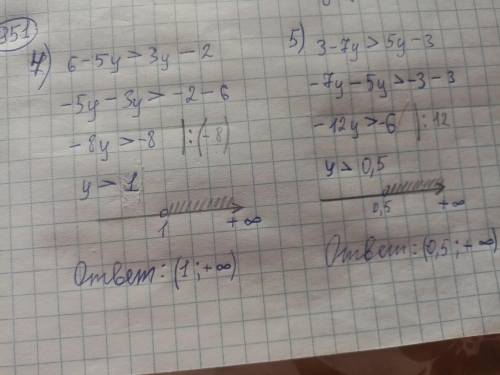 351
4) 6-5y > 3y -2
-5y-3y > -2-6
-8y > -8 |:(-8)
y > 1
1 +∞
Ответ: (1; +∞)
5) 3-7y > 5y-3
-7y-5y > -3-3
-12y > -6 |:12
y > 0,5
0,5 +∞
Ответ: (0,5; +∞)